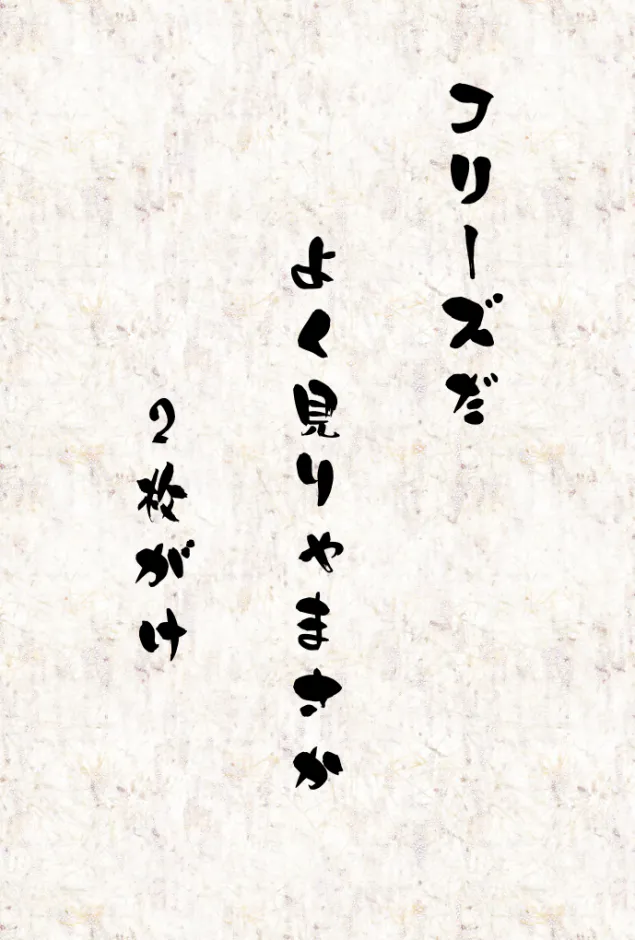 フリーズだ
よく見りゃまさか
2枚がけ